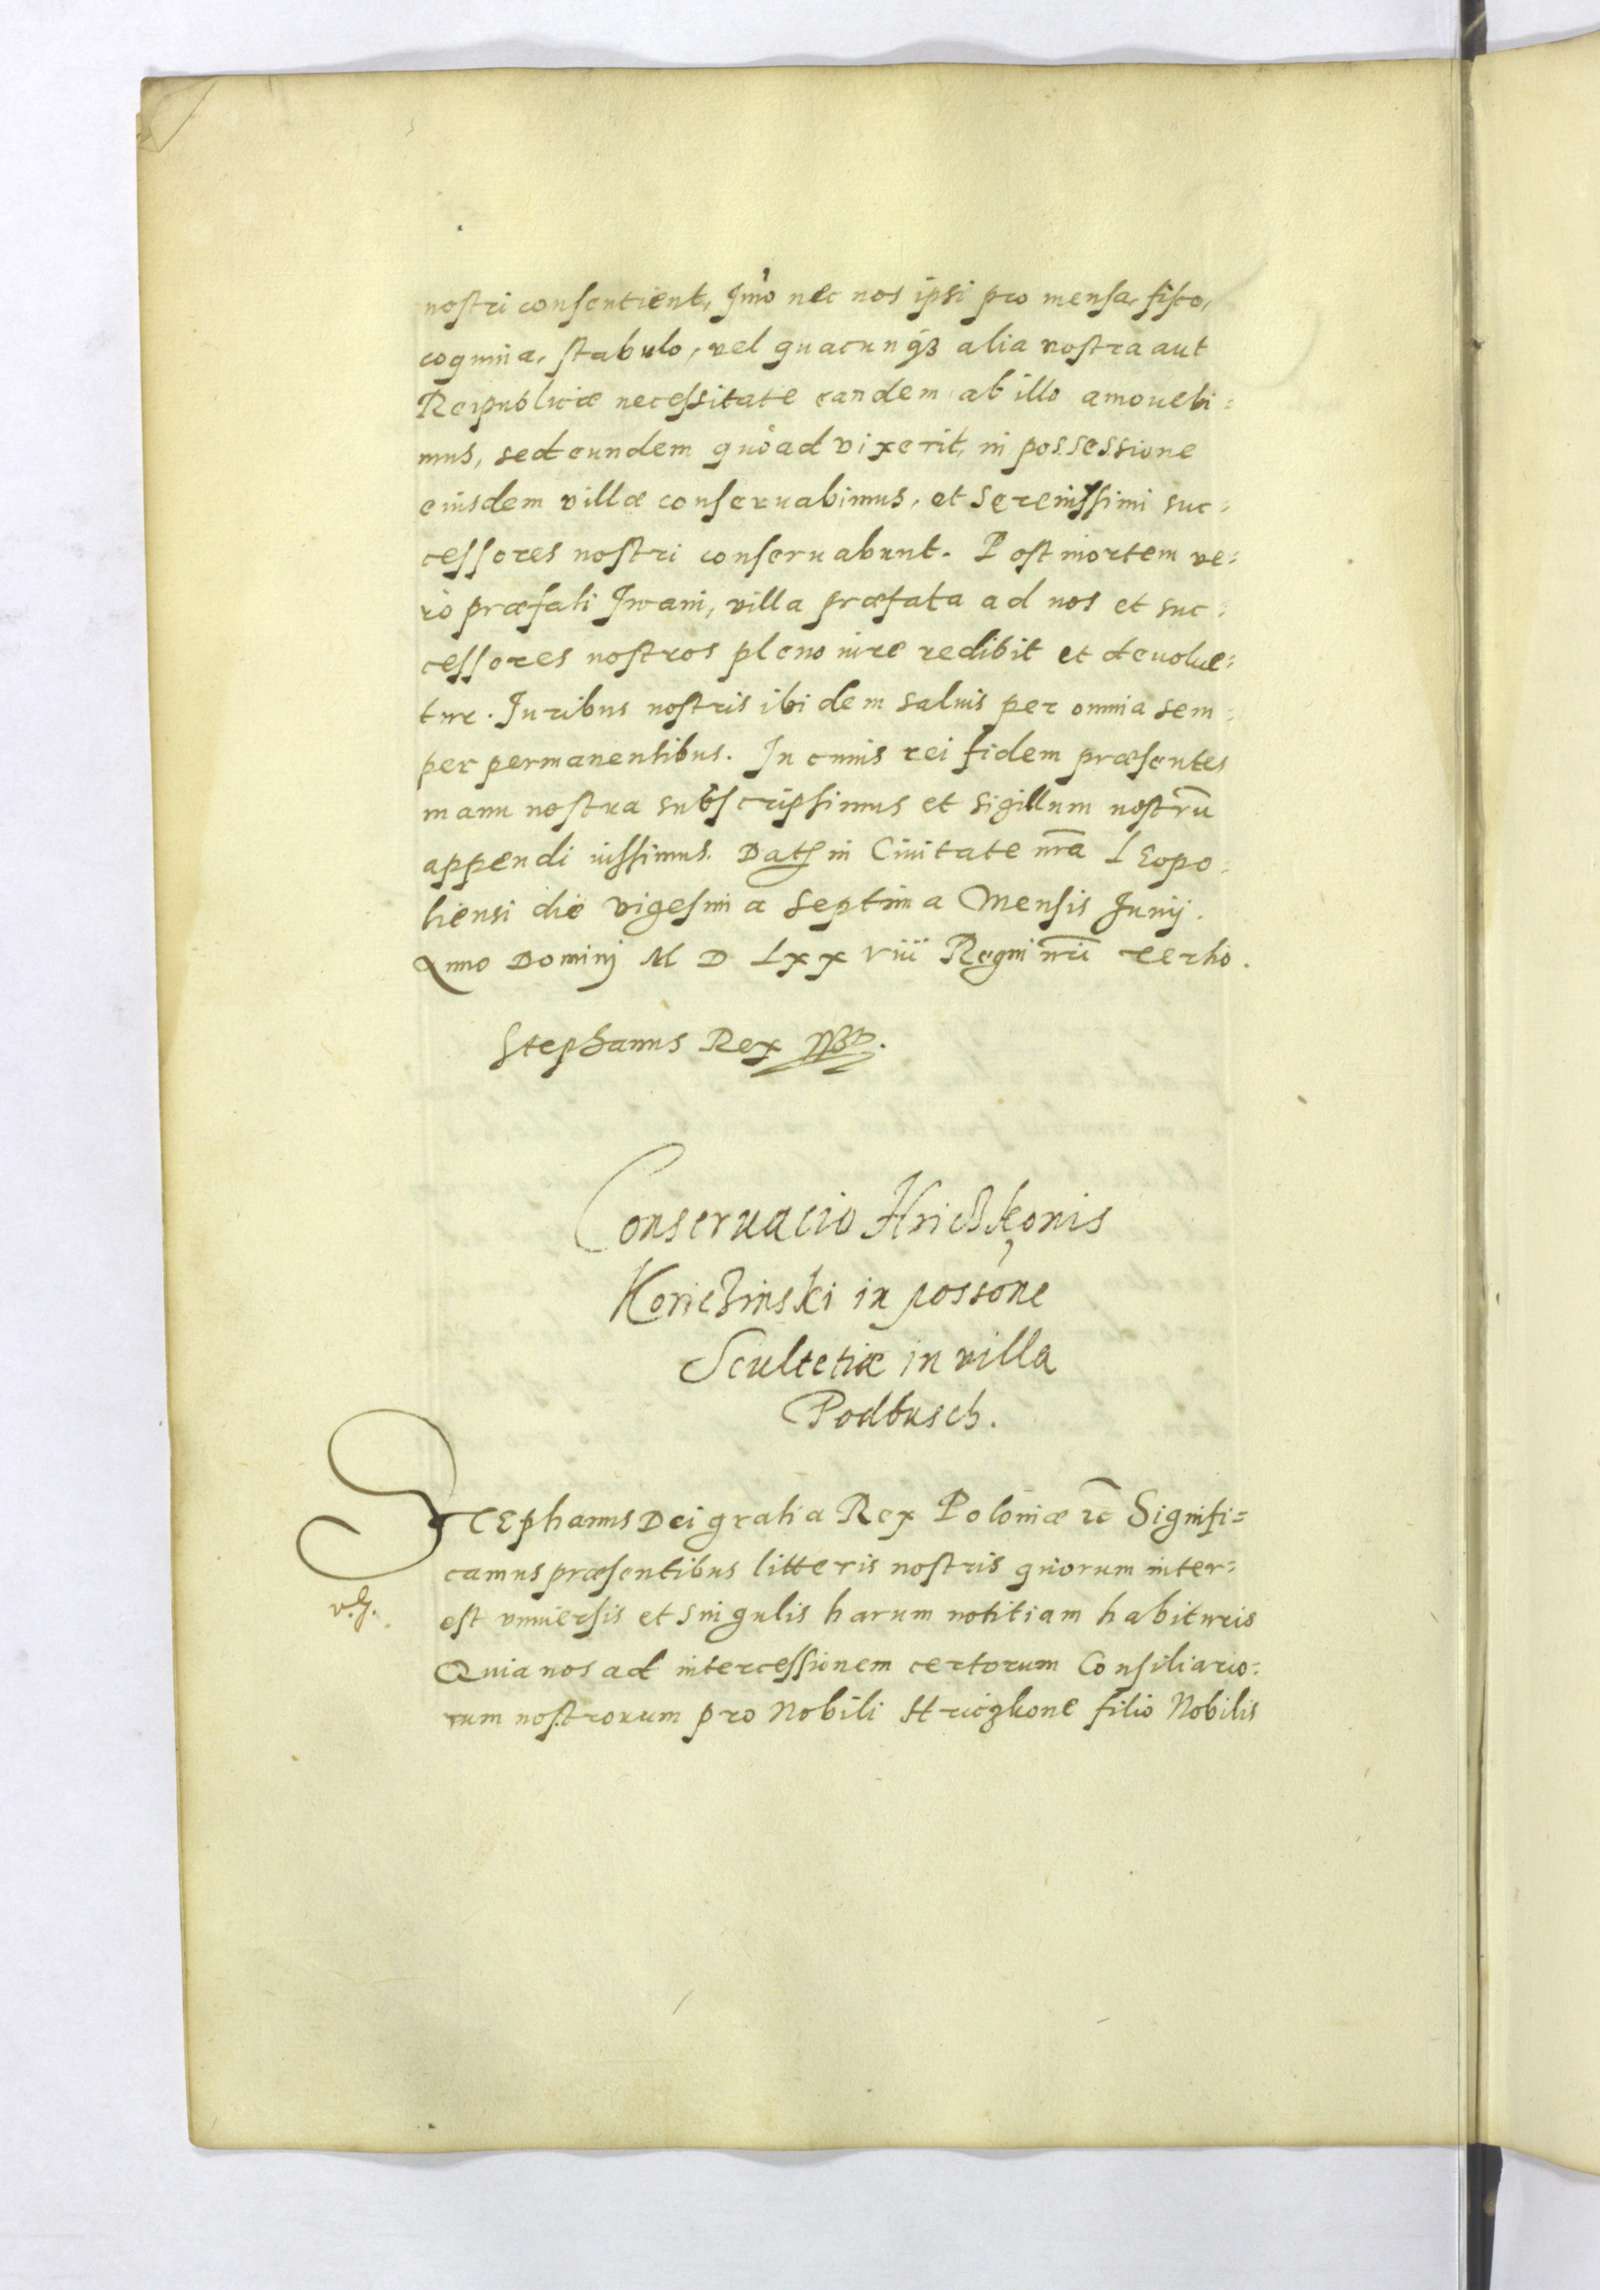 nostri consentient, Imò nec nos ipsi pro mensa, fisco,
coquina, stabulo, vel quacunq3 alia nostra aut
Reipublicæ necessitate eandem ab illo amouebi=
mus, sed eundem quòad vixerit, in possessione
eiusdem villæ conseruabimus, et Serenissimi suc=
cessores nostri conseruabunt. Post mortem ve=
rò præfati Iwani, villa præfata ad nos et suc=
cessores nostros pleno iure redibit et deuolue=
tur. Iuribus nostris ibidem saluis per omnia sem=
per permanentibus. In cuius rei fidem præsentes
manu nostra subscripsimus et sigillum nostrũ
appendi iussimus. Dat in Ciuitate nr̃a Leopo=
liensi die vigesima septima Mensis Iunij.
Anno Dominj M D Lxx viii Regni nr̃i tertio.
Stephanus Rex
Conseruacio Hriczkonis
Koriczinski in possone
Scultetiæ in villa
Podbusch.
Stephanus Dei gratia Rex Poloniæ etc̃ Signifi=
camus præsentibus litteris nostris quorum inter=
v.g.
est vniuersis et singulis harum notitiam habituris
Quia nos ad intercessionem certorum Consiliario=
rum nostrorum pro Nobili Hriczkone filio Nobilis